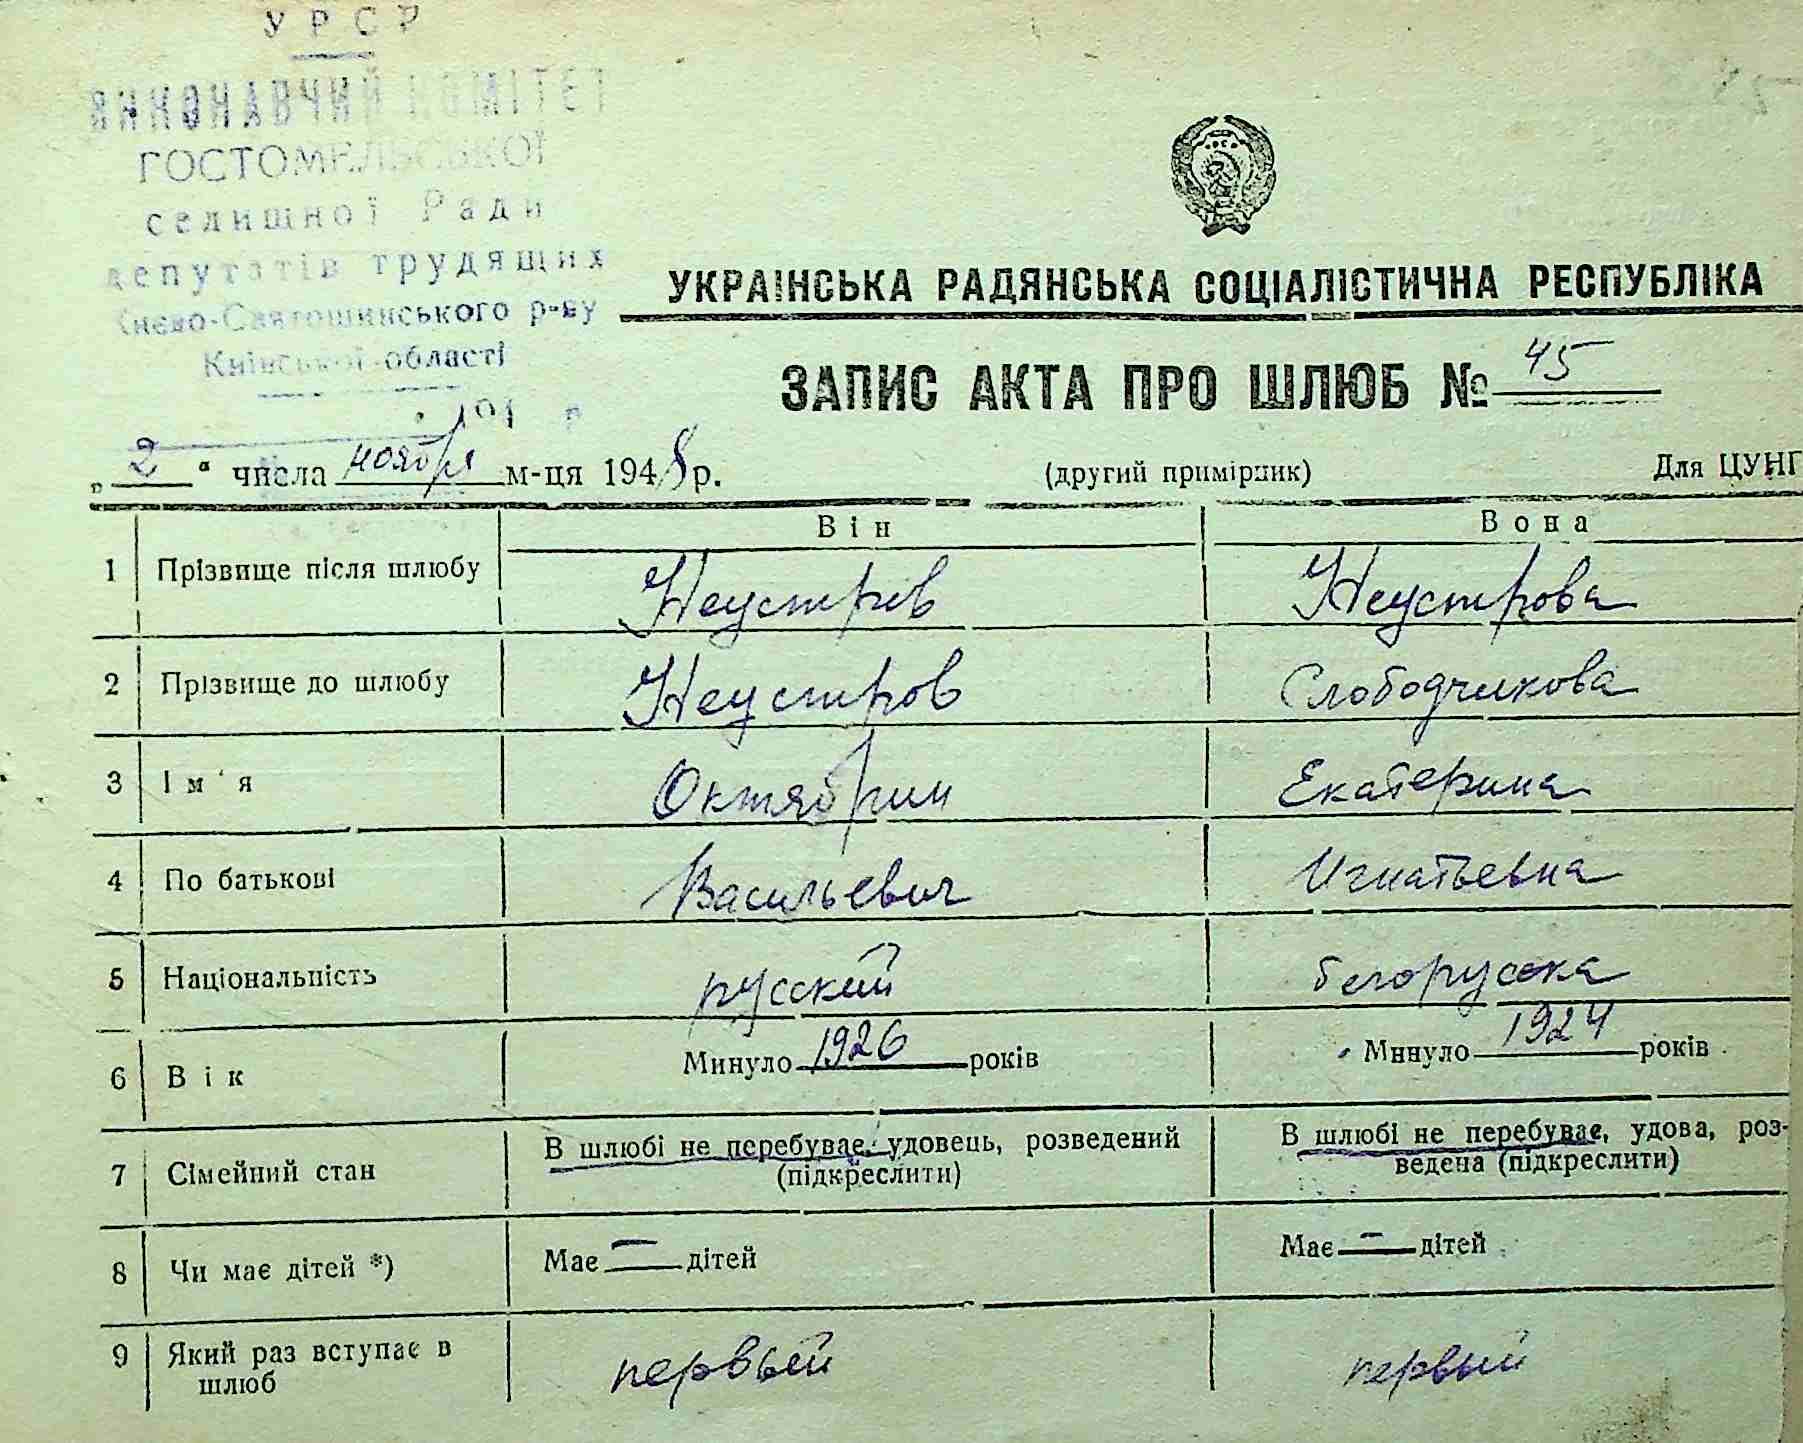 УРСР
ВИКОНАВЧИЙ КОМІТЕТ
ГОСТОМЕЛЬСЬКОЇ
селищної Ради
депутатів трудящих
Києво-Святошинського р-ну
Київської області
УКРАЇНСЬКА РАДЯНСЬКА СОЦІАЛІСТИЧНА РЕСПУБЛІКА
ЗАПИС АКТА ПРО ШЛЮБ № 45
„2“ числа ноября м-ця 1948 р. (другий примірник) Для ЦУНГ
Він Вона
1 Прізвище після шлюбу Неустрев Неустрова
2 Прізвище до шлюбу Неустров Слободчикова
3 Ім'я Октябрин Екатерина
4 По батькові Васильевич Игнатьевна
5 Національність русский белорусска
6 Вік Минуло 1926 років Минуло 1924 років
7 Сімейний стан В шлюбі не перебуває, удовець, розведений (підкреслити) В шлюбі не перебуває, удова, роз-
ведена (підкреслити)
8 Чи має дітей *) Має — дітей Має — дітей
9 Який раз вступає в шлюб первый первый